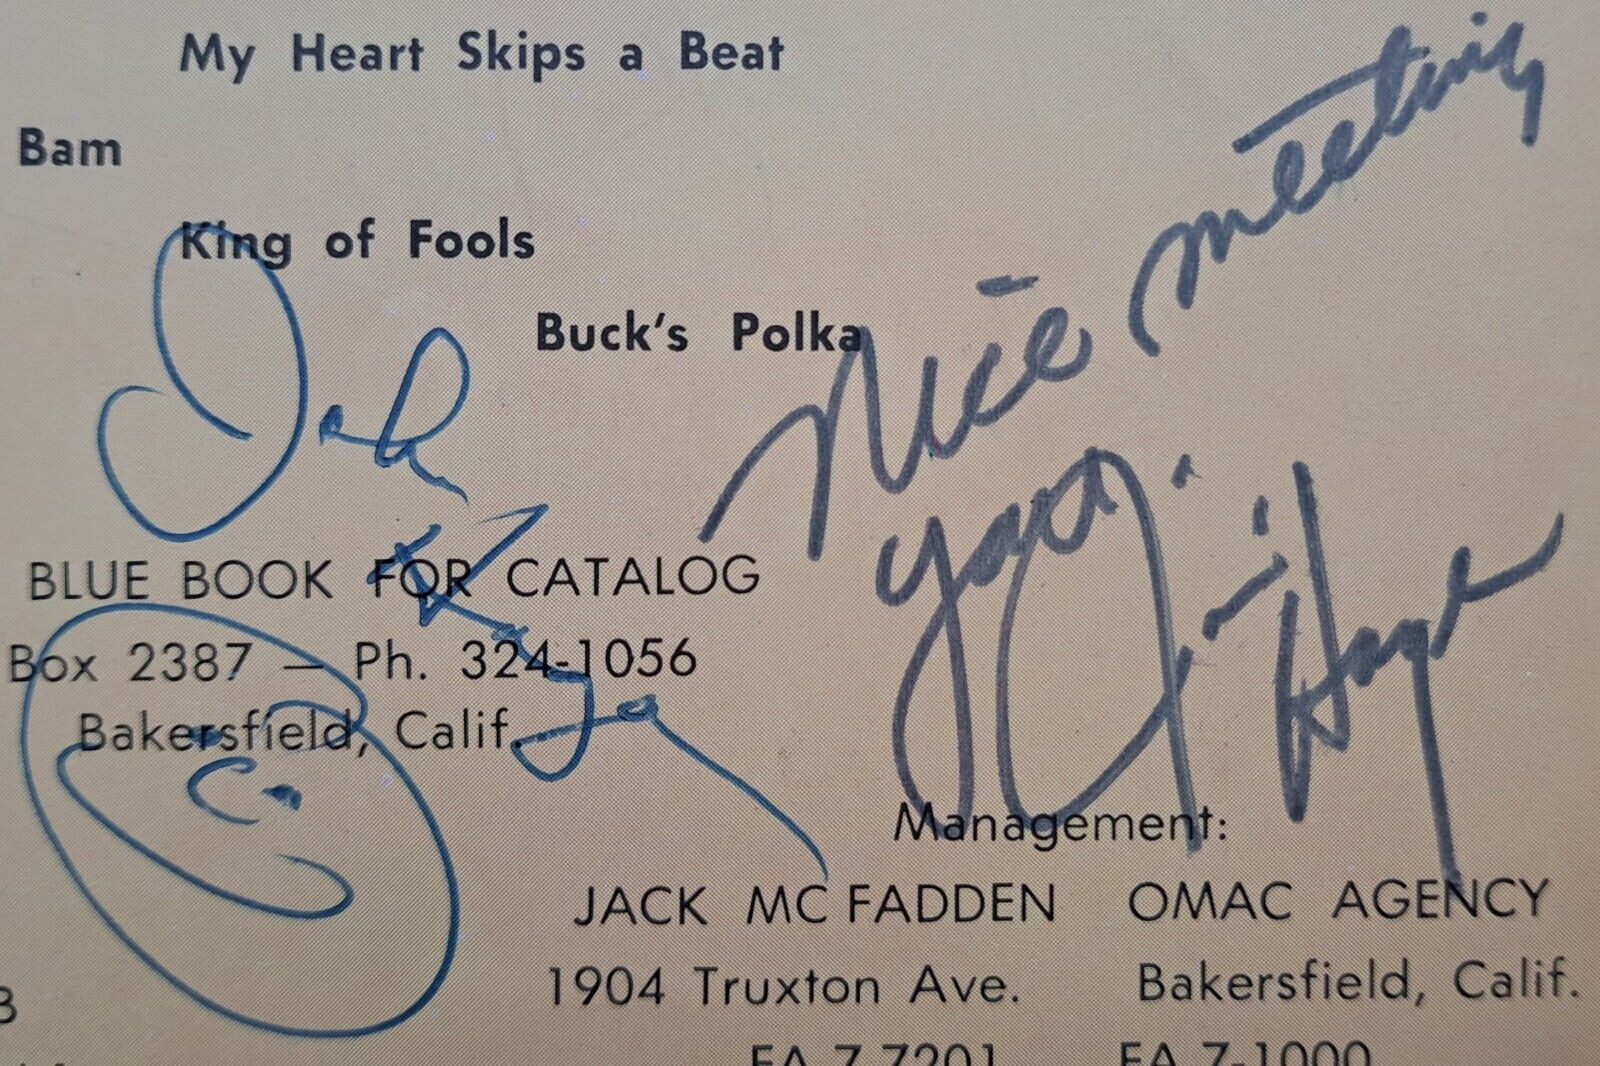 My Heart Skips a Beat
Bam
King of Fools
Buck's Polka
Nice meeting
you
BLUE BOOK FOR CATALOG
Box 2387 — Ph. 324-1056
Bakersfield, Calif.
Management:
JACK MC FADDEN OMAC AGENCY
1904 Truxton Ave. Bakersfield, Calif.
EA 7-7201 EA 7-1000